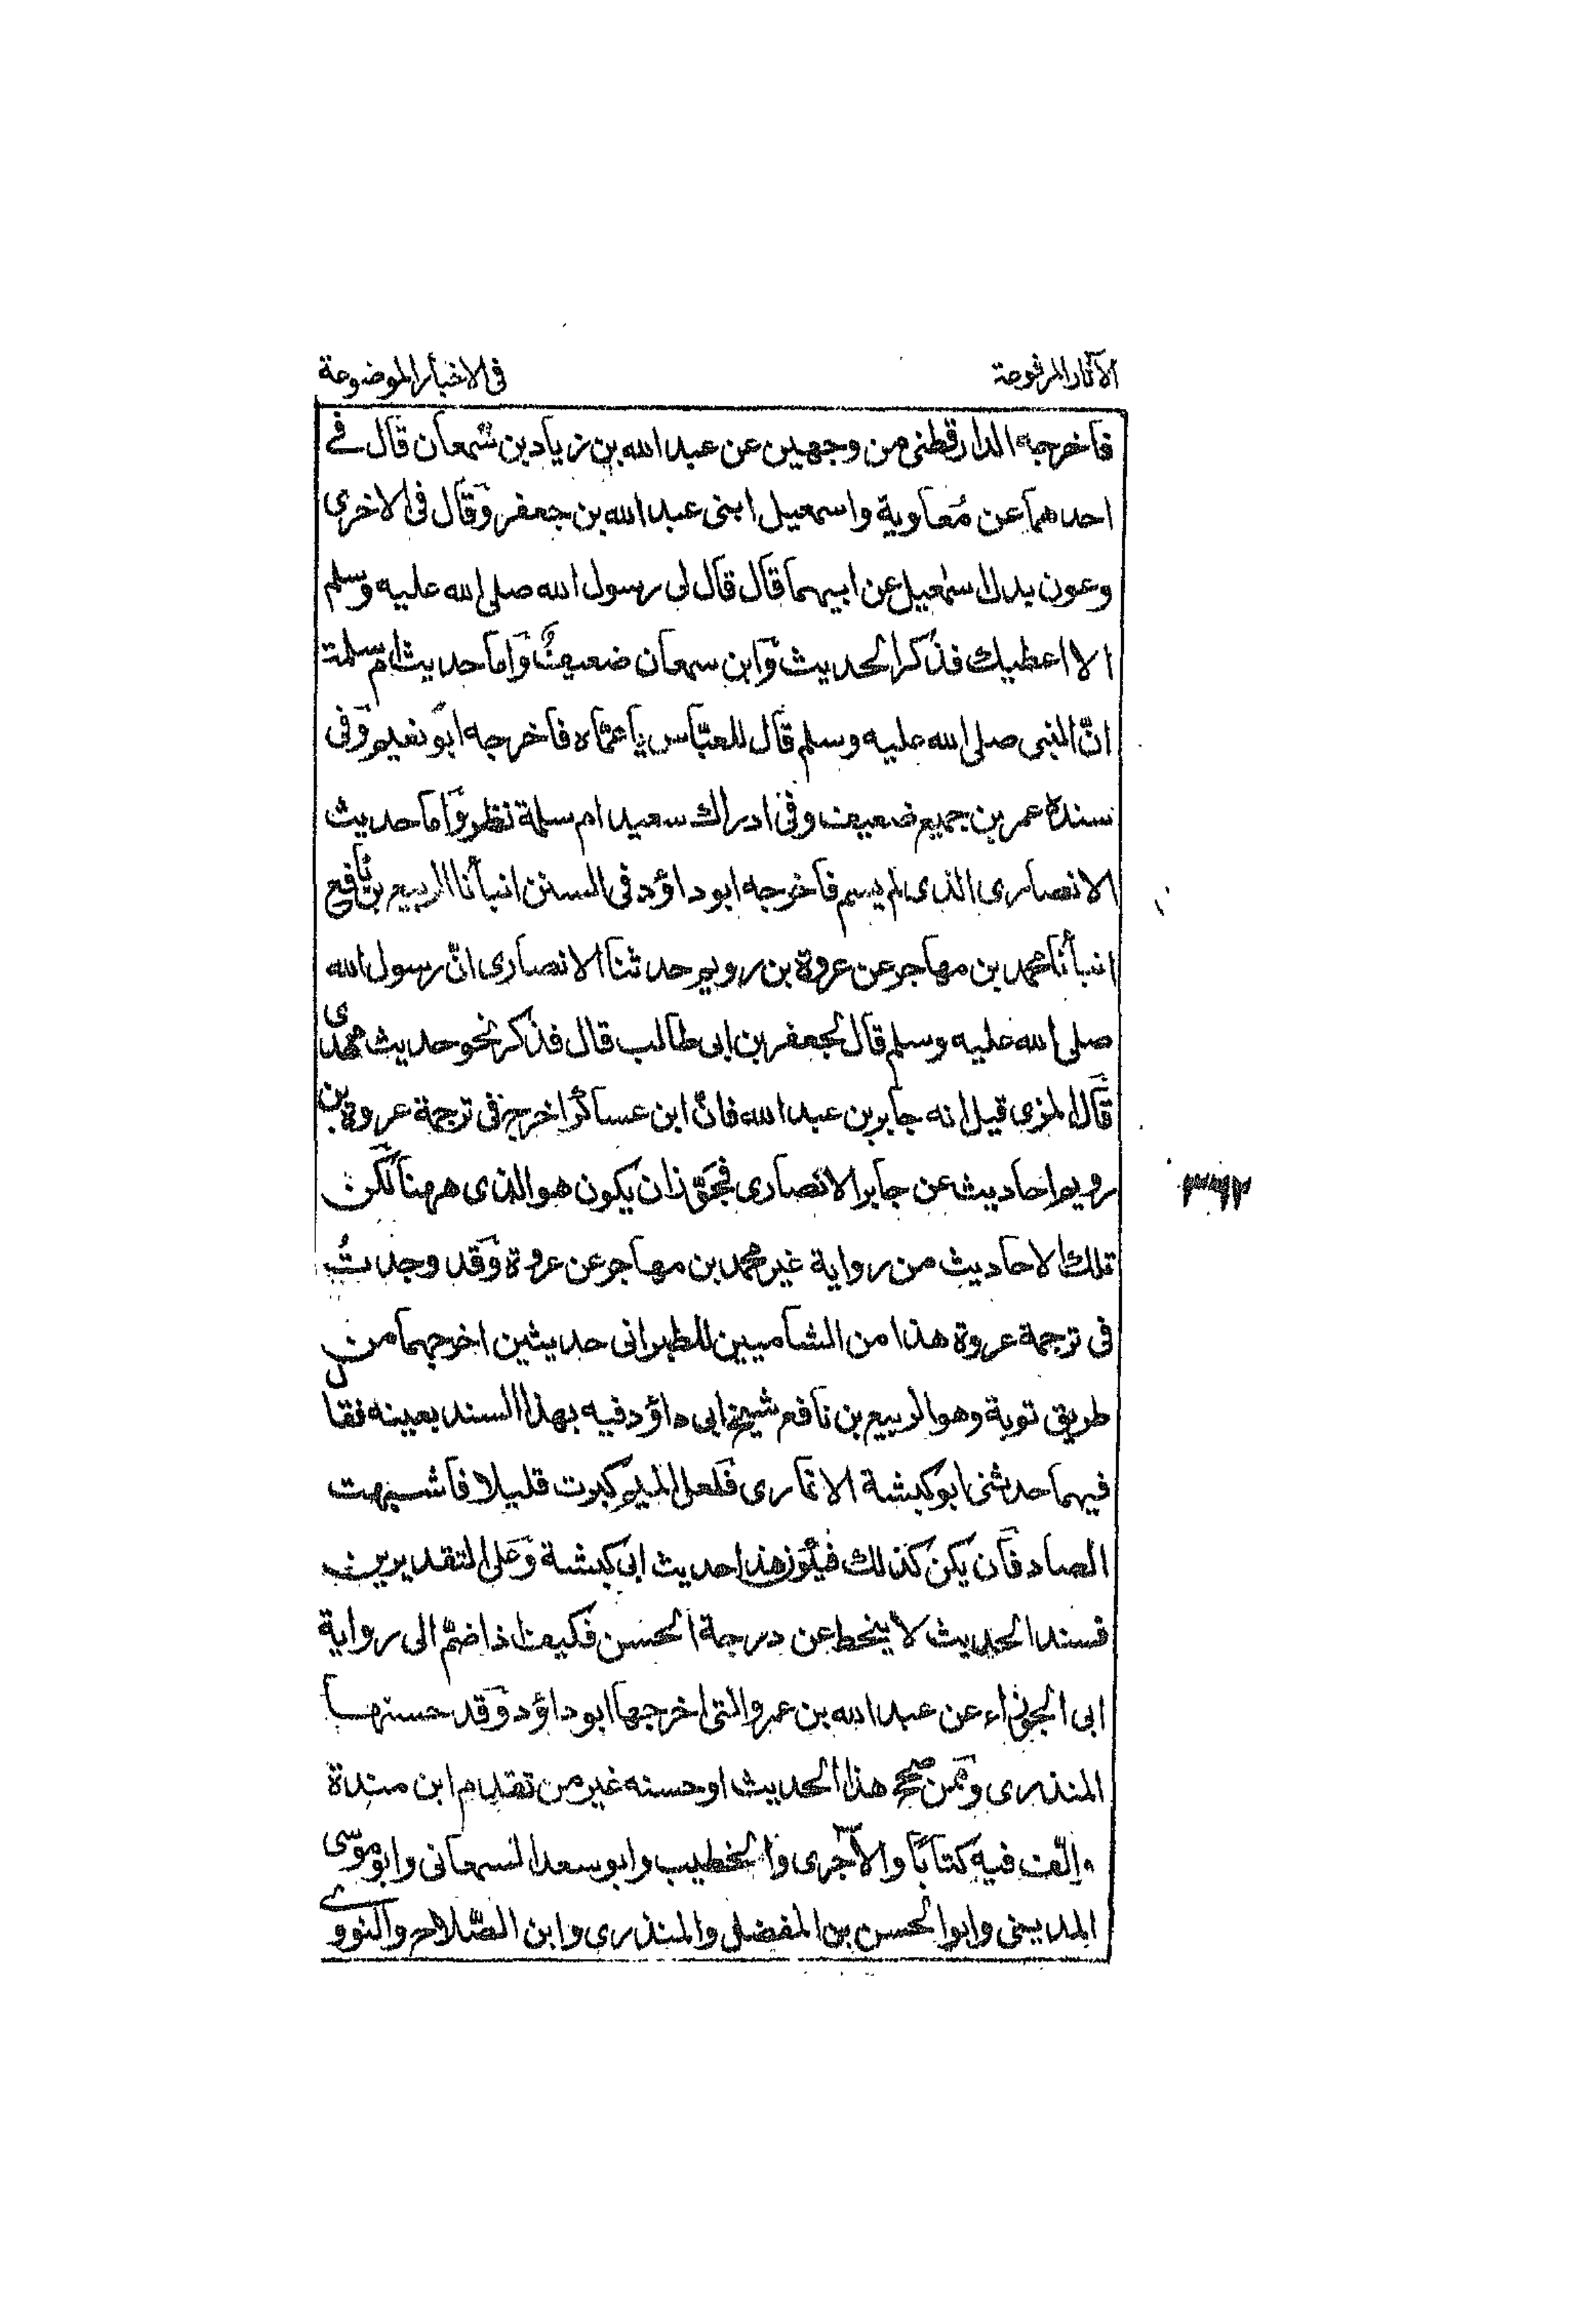 الآثار المرفوعة
فى الاخبار الموضوعة
فاخرجه الدارقطنى من وجهين عن عبد الله بن زياد بن سمعان قال فے
احدهما عن معاوية واسمعيل ابنى عبد الله بن جعفر وقال فى الاخرى
وعون بدل اسمعيل عن ابيهما قال قال لى رسول الله صلى الله عليه وسلم
الا اعطيك فذكر الحديث وابن سمعان ضعيف واما حديث ام سلمة
انّ النبى صلى الله عليه وسلم قال للعبّاس يا عمّاه فاخرجه ابو نعيم وفى
سنده عمر بن جميع ضعيف وفى ادراك سعيد ام سلمة نظر واما حديث
الانصارى الذى لم يسم فاخرجه ابو داؤد فى السنن انبأنا الربيع بن نافع
انبأنا محمد بن مهاجر عن عروة بن رويم حدثنا الانصارى انّ رسول الله
صلى الله عليه وسلم قال لجعفر بن ابى طالب قال فذكر نحو حديث مهدى
قال المزى قيل انه جابر بن عبد الله فانّ ابن عساكر اخرج فى ترجمة عروة بن
رويم احاديث عن جابر الانصارى فجوّز ان يكون هو الذى ههنا لكن
تلك الاحاديث من رواية غير محمد بن مهاجر عن عروة وقد وجدتُ
فى ترجمة عروة هذا من الشاميين للطبرانى حديثين اخرجهما من
طريق توبة وهو الربيع بن نافع شيخ ابى داؤد فيه بهذا السند بعينه فقال
فيهما حدثنى ابو كبشة الانمارى فلعل الميم كبرت قليلا فاشبهت
الصاد فان يكن كذلك فيكون هذا حديث ابى كبشة وعلى التقديرين
فسند الحديث لا ينحط عن درجة الحسن فكيف اذا ضمّ الى رواية
ابى الجوزاء عن عبد الله بن عمرو التى اخرجها ابو داؤد وقد حسنها
المنذرى وممن صحح هذا الحديث او حسنه غير من تقدم ابن مندة
والّف فيه كتابًا والآجرى والخطيب وابو سعد السمعانى وابو موسى
المدينى وابو الحسن بن المفضل والمنذرى وابن الصّلاح والنووے
٣٦٢